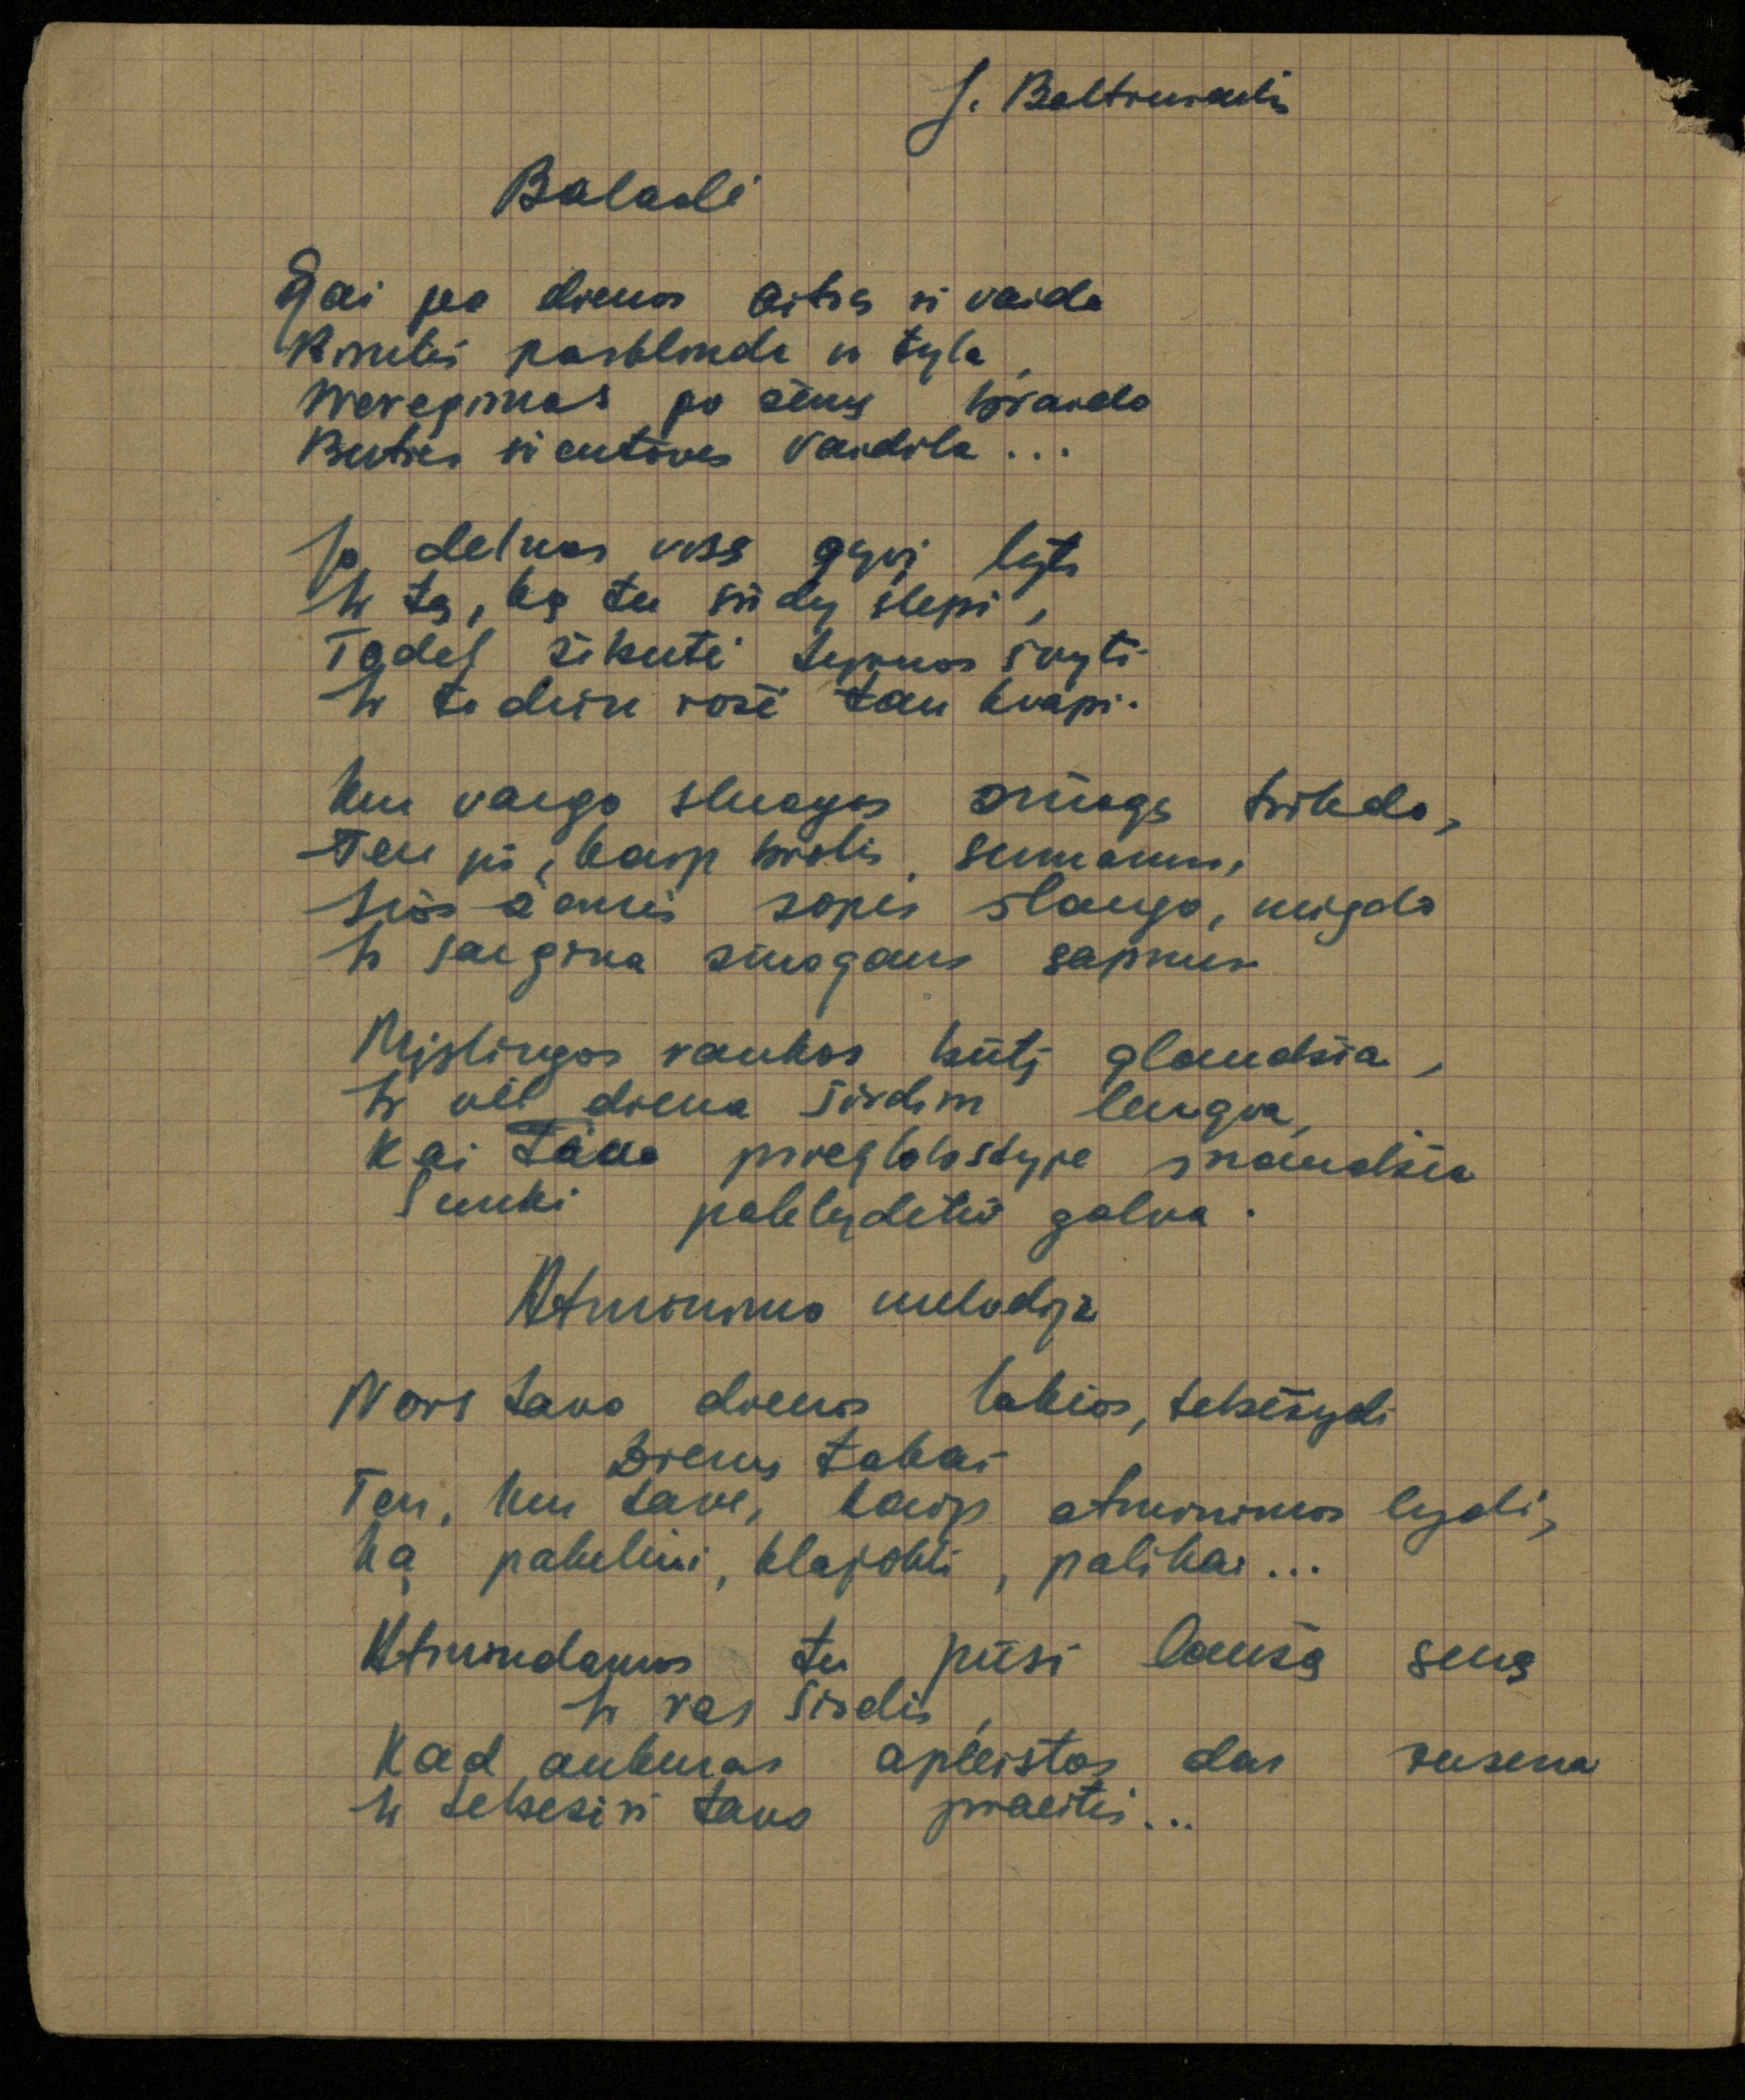 J. Baltrušaitis
Baladė
Kai po dienos aitrą ir vaidą
Rimtis pasklinda ir tyla,
Neregimas po žemę braido
Būties ir cutōves vaidila...
Jo delnas visą gyvį lyti
Ir tą, ką tu širdy slepi,
Todėl žibutė tyruos švyti
Ir todėl rožė tau kvapi.
Kur vargo slogas žmogų trikdo,
Ten jis, kaip brolis, sumanus,
Šios žemės sopei slaugo, migdo
Ir saugina žmogaus sapnus
Mįslingos rankos būtį glaudžia,
Ir vėl diena širdim lengva,
Kai tavo prieglobstyje snaudžia
Sunki paklydėlio galva.
Atminimo melodija
Nors tavo dienos lakios, težėrydi
Dienų takai
Ten, kur tave, kaip atminimas lydi,
Ką pakeliui, klajokli, palikai...
Atmindamas tu pūsi laužą seną
Ir ras širdis,
Kad aukuras apleistas dar rusena
Ir tebežiri tavo praeitis...